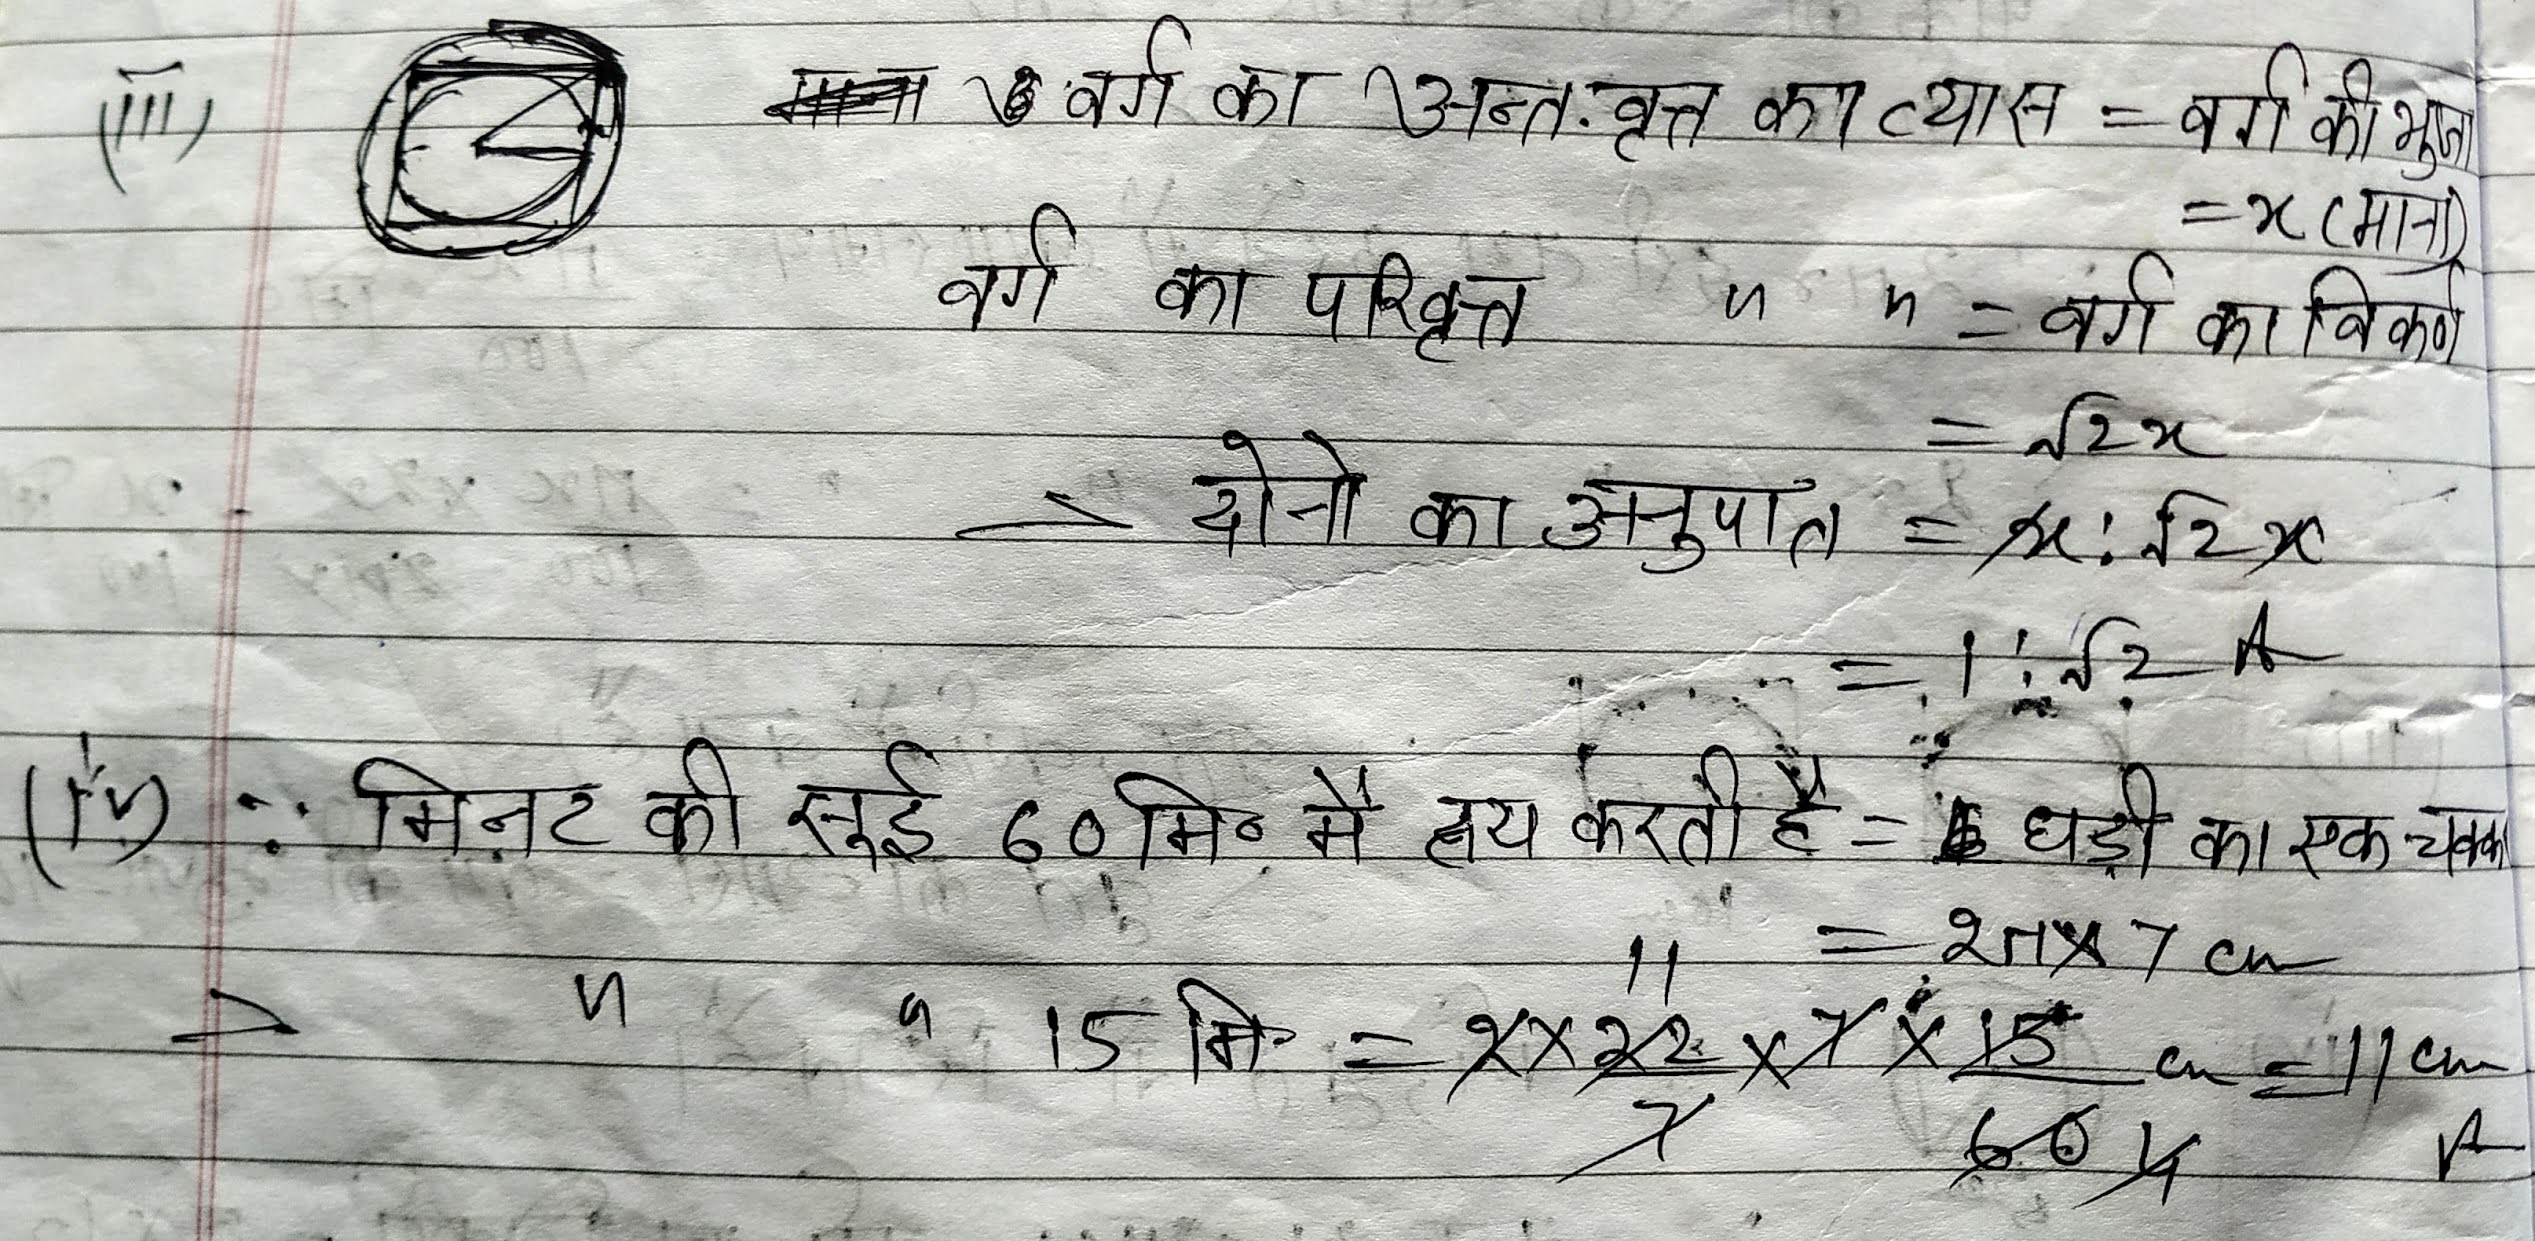 (iii) वर्ग का अन्त: वृत्त का व्यास = वर्ग की भुजा
= x (माना)
वर्ग का परिवृत्त " " = वर्ग का विकर्ण
= √2x
दोनो का अनुपात = x : √2 x
= 1 : √2 A
(iv) ∵ मिनट की सूई 60 मि० में तय करती है = घड़ी का एक चक्क
= 2π × 7 cm
11
" " 15 मि. = 2 × 22 × 7 × 15 cm = 11 cm
7 60 4 A